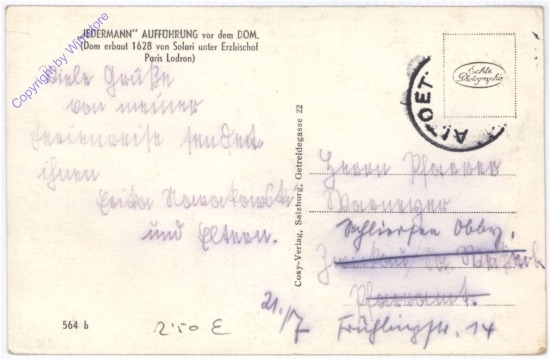 „JEDERMANN" AUFFÜHRUNG vor dem DOM.
(Dom erbaut 1628 von Solari unter Erzbischof
Paris Lodron)
Copyright by Wigstore
Viele Grüße
von meiner
Ferienreise sendet
ihnen
Erika Nowakowski
und Eltern.
564 b
2.50 €
Cosy-Verlag, Salzburg, Getreidegasse 22
Echte
Photographie
ALTOET
Herrn Pfarrer
Schliersee Obby.
Pfarramt.
Frühlingstr. 14
21./7